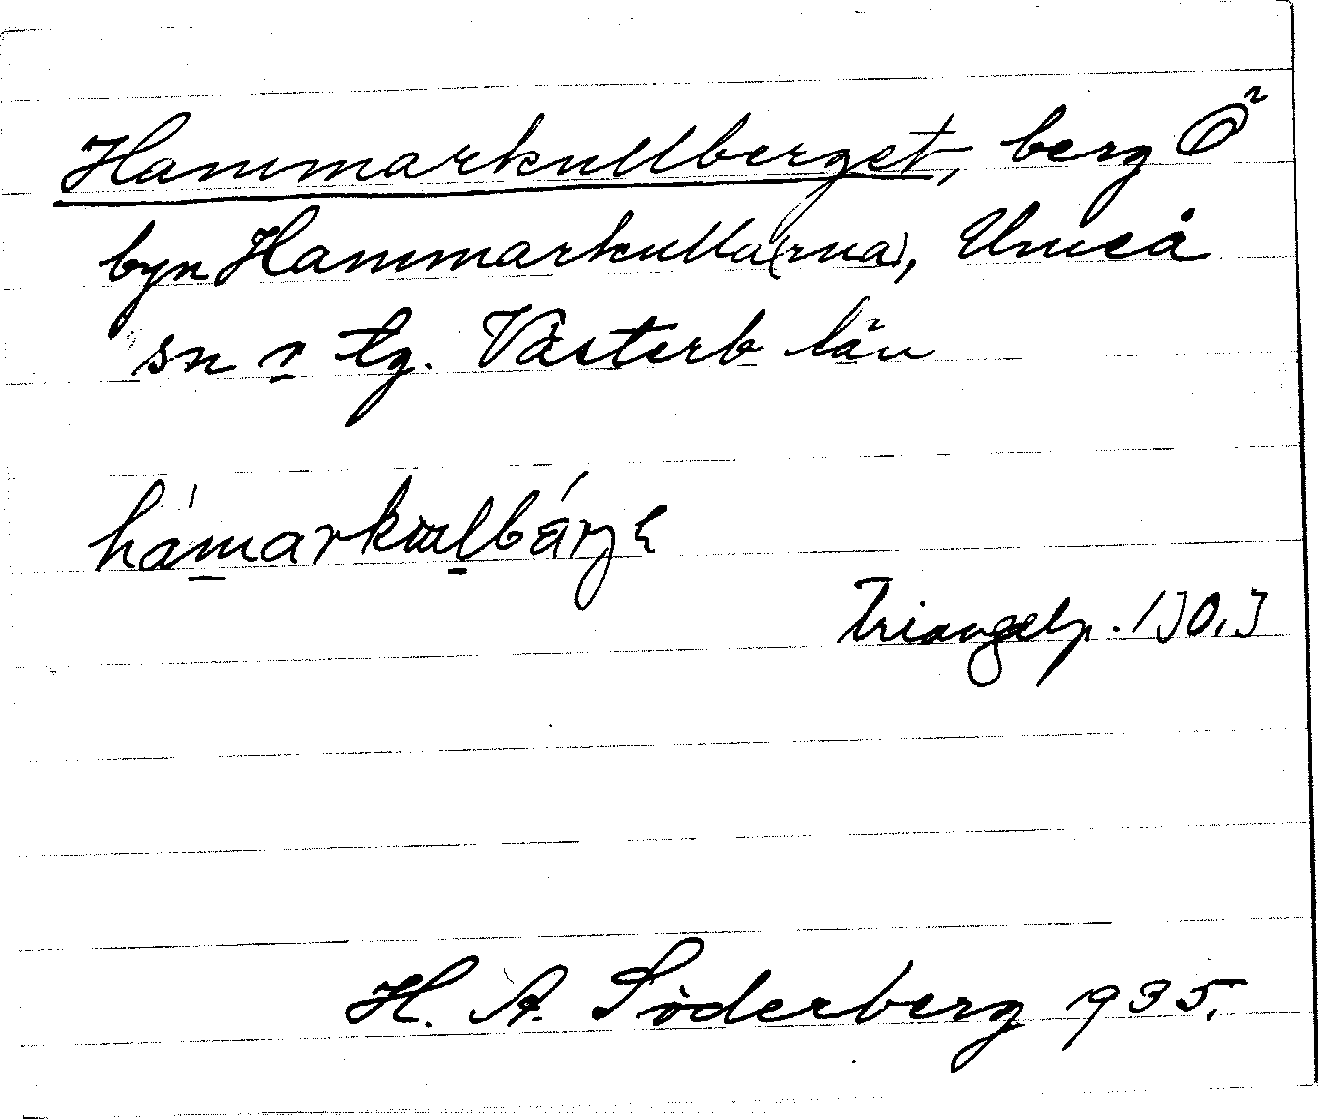 Hammarkullberget, berg Ö
byn Hammarkulla(rna), Umeå
sn o tg. Västerb län
Triangelp. 130,3
H. A. Söderberg 1935.